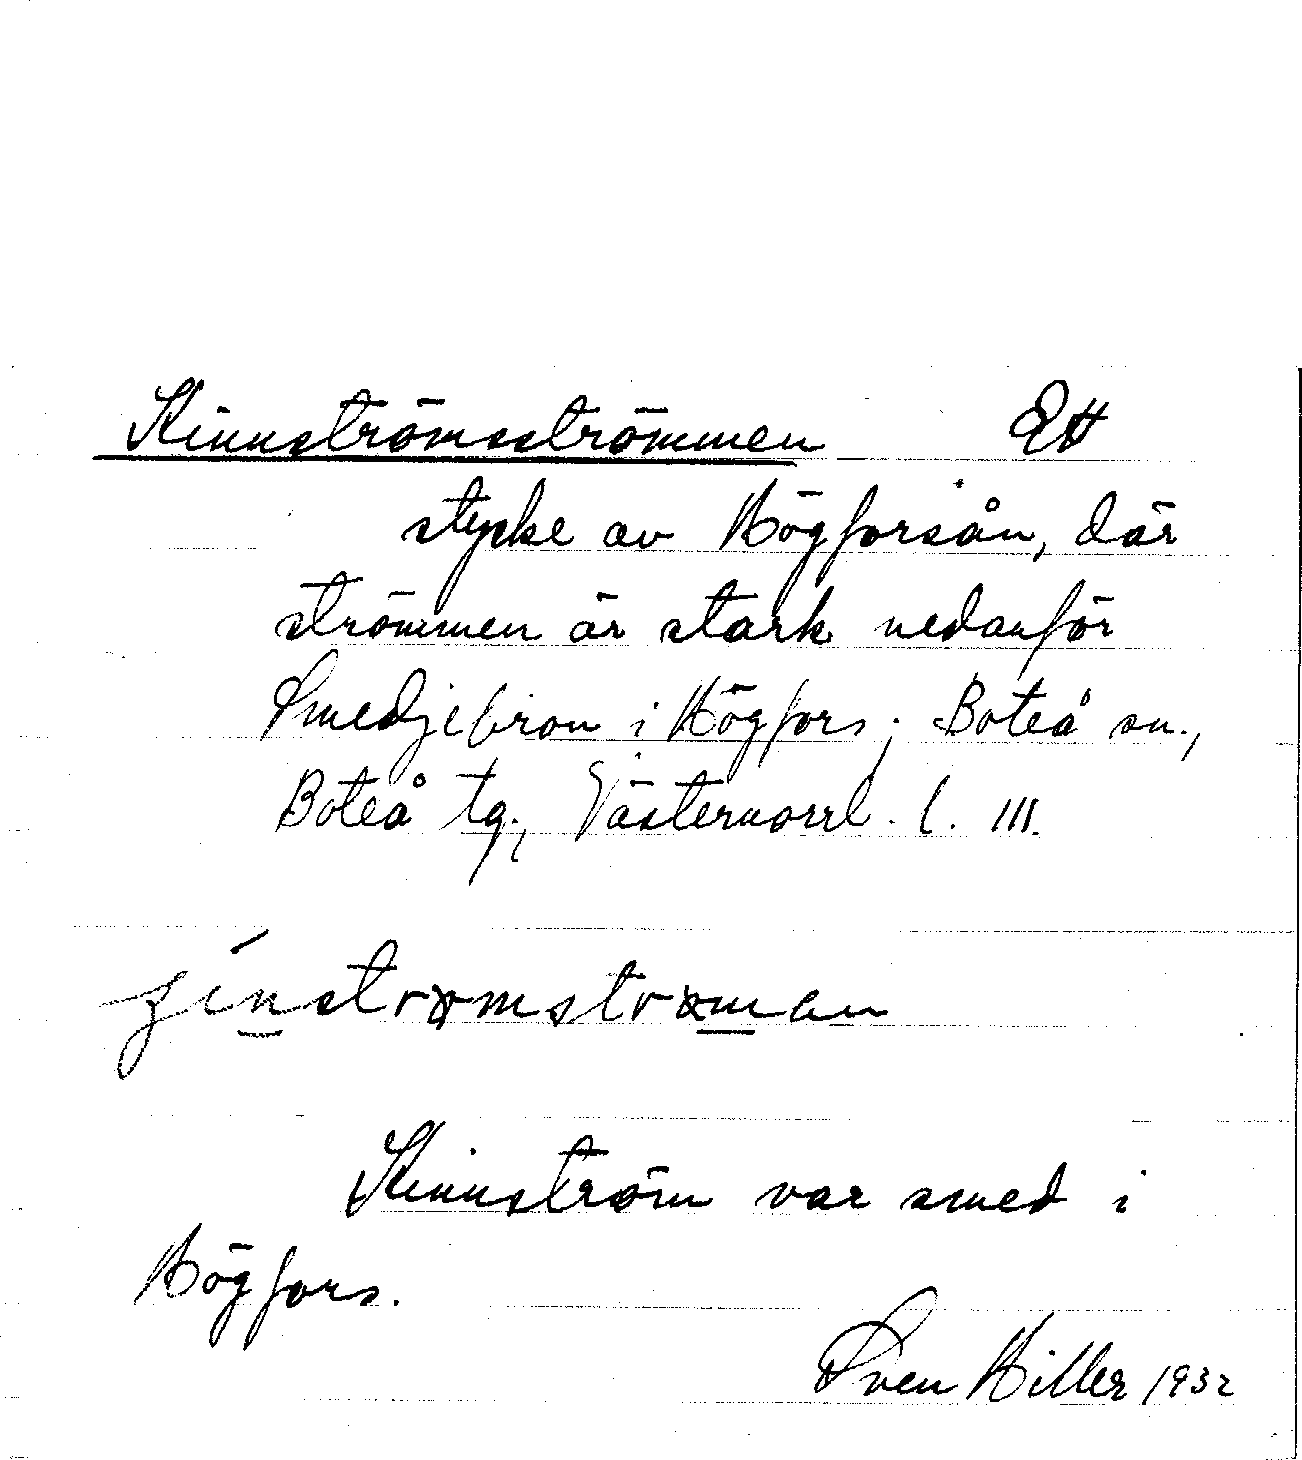 Kinnströmsströmmen Ett
stycke av Högforsån, där
strömmen är stark nedanför
Smedjebron i Högfors; Boteå sn.,
Boteå tg., Västernorrl. l. III.
strömen
Kinnström var smed i
Högfors.
Sven Hiller 1932